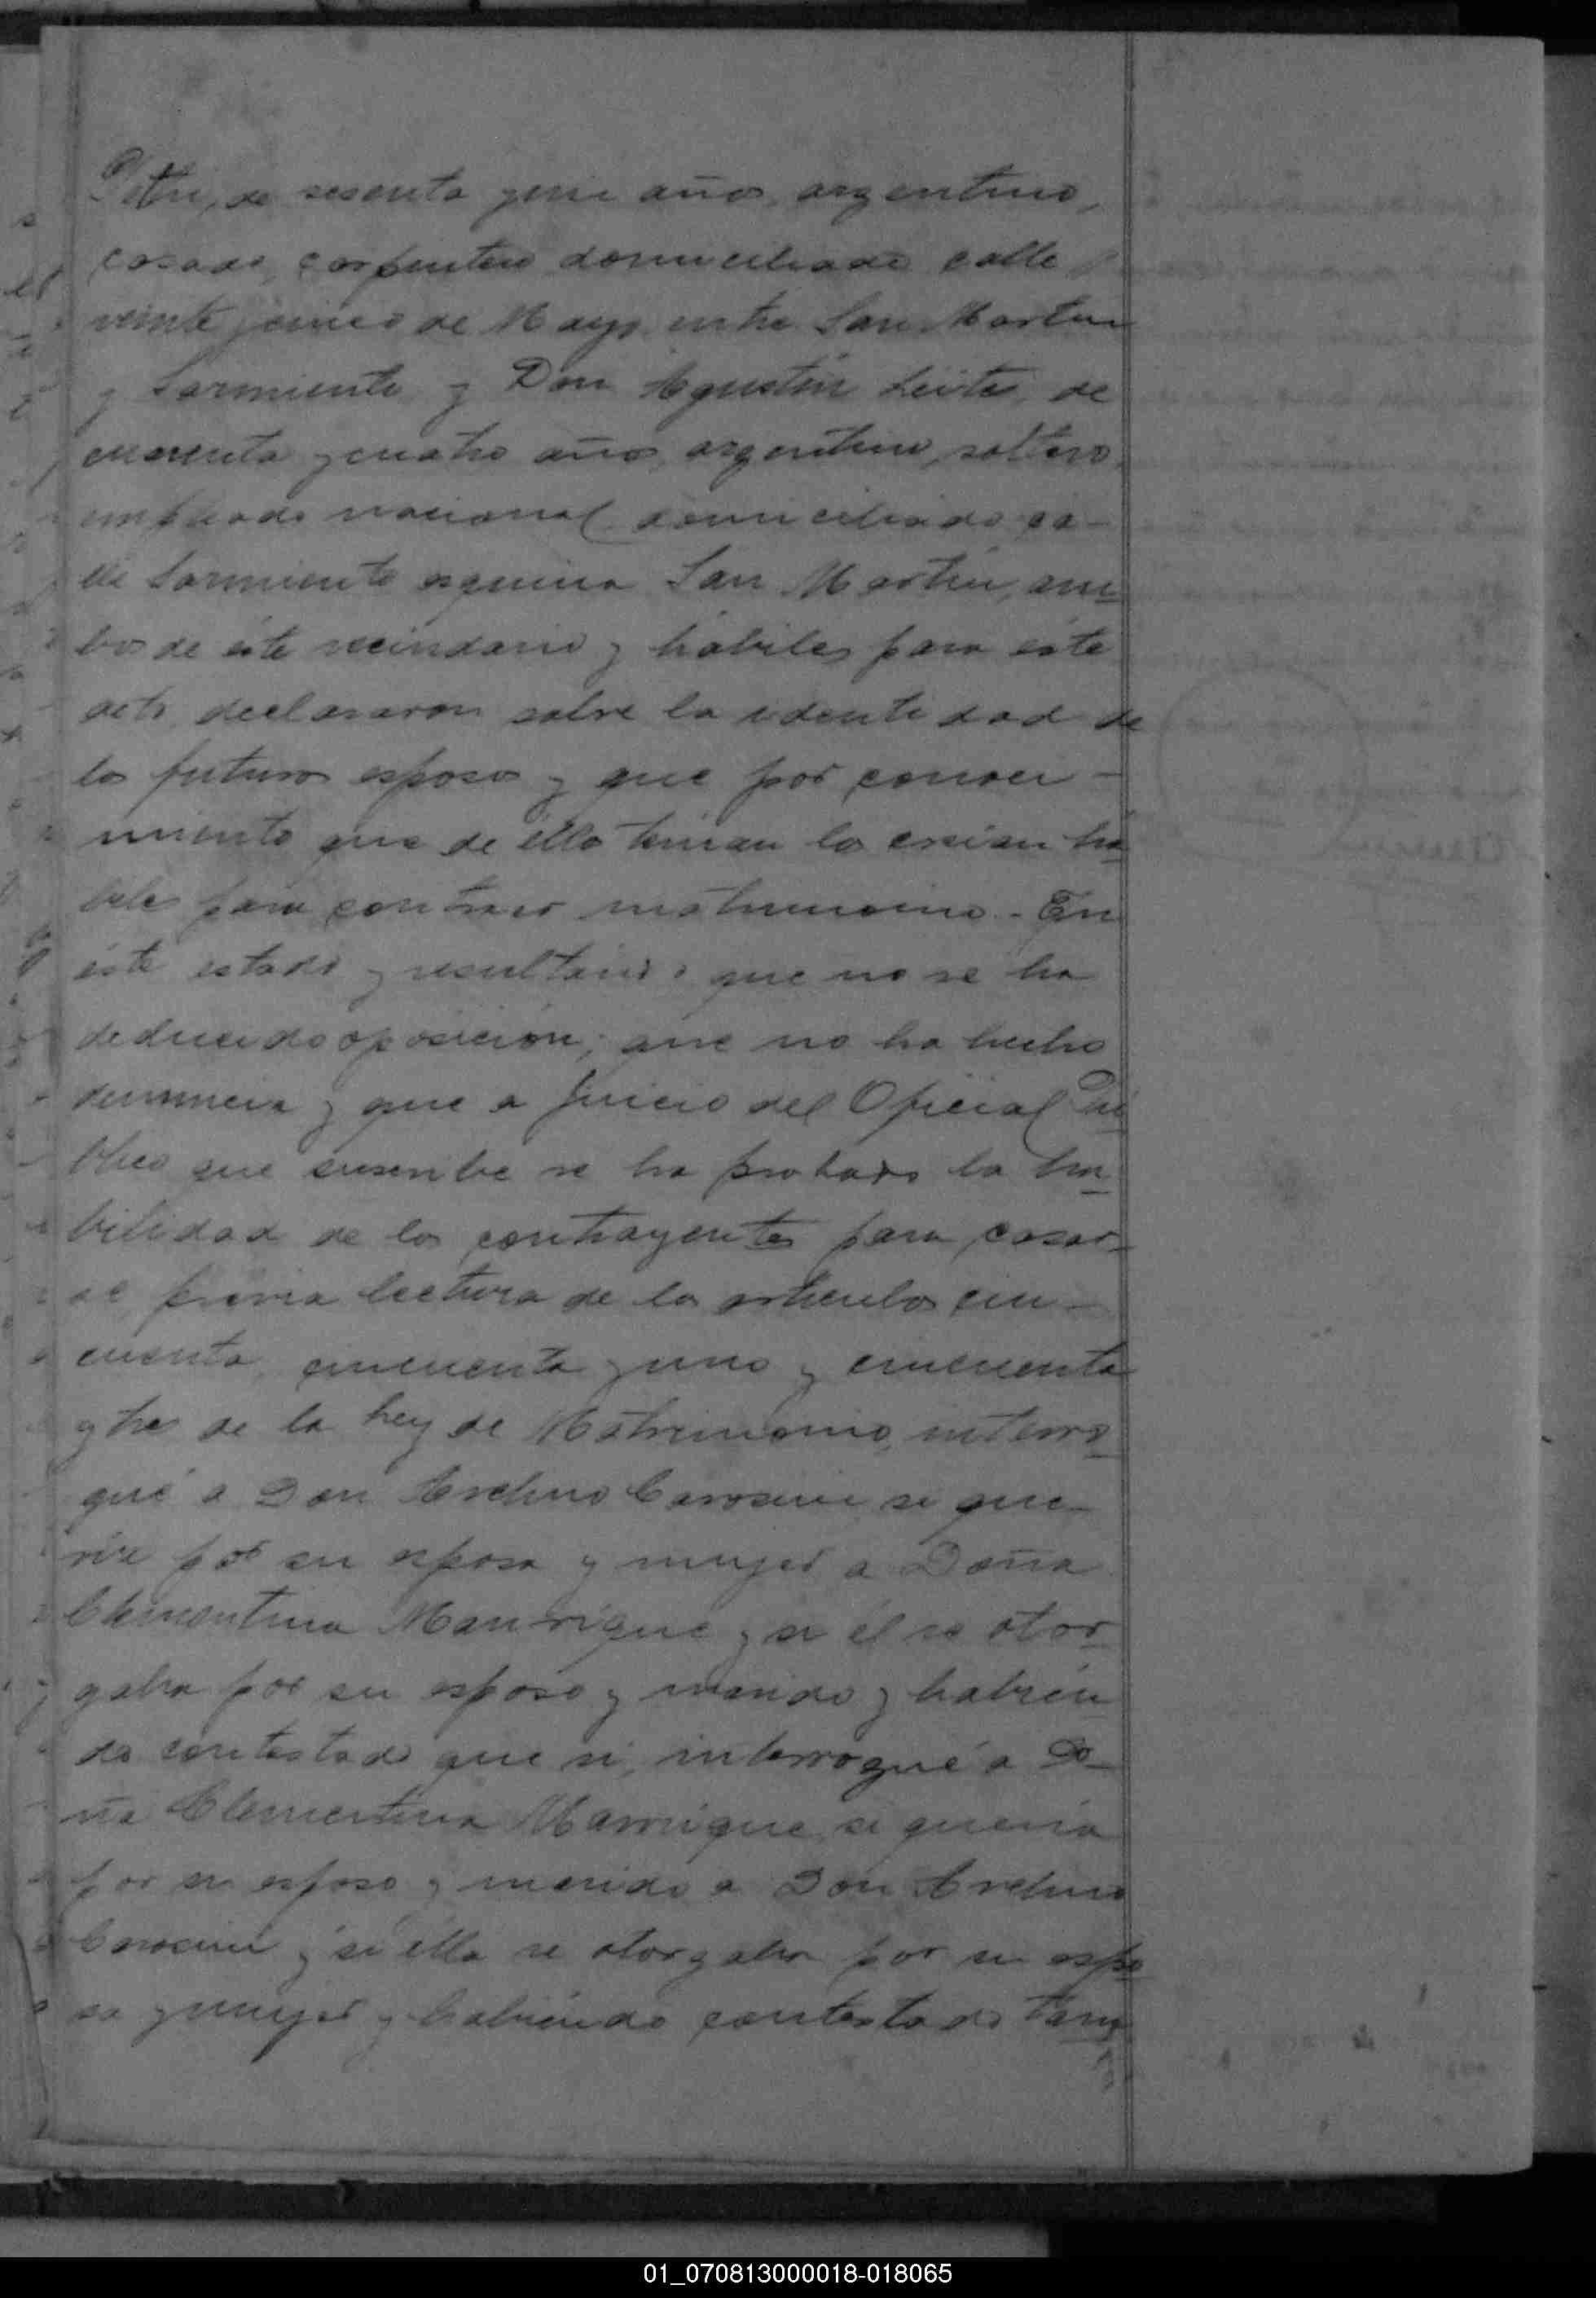 de sesenta y un años, argentino,
casado, carpintero domiciliado calle
veinte y cinco de Mayo entre San Martin
y Sarmiento y Don Agustín Leites, de
cuarenta y cuatro años, argentino, soltero,
empleado nacional domiciliado ca-
lle Sarmiento esquina San Martin, am-
bos de éste vecindario y hábiles para éste
acto declararon sobre la identidad de
los futuros esposos y que por conoci-
miento que de éllos tenían los creían há-
biles para contraer matrimonio. - En
éste estado y resultando que no se ha
deducido oposición; que no ha hecho
denuncia y que a juicio del Oficial Pú-
blico que suscribe se ha probado la ha-
bilidad de los contrayentes para casar-
se, previa lectura de los artículos cin-
cuenta, cincuenta y uno y cincuenta
y tres de la Ley de Matrimonio, interro-
gué a Don Avelino Carosini si que-
ría por su esposa y mujer a Doña
Clementina Manrique y si él se otor-
gaba por su esposo y marido y habién-
do contestado que si, interrogué a Do-
ña Clementina Manrique si quería
por su esposo y marido a Don Avelino
Carosini y si élla se otorgaba por su espo-
sa y mujer y habiéndo contestado tam-
01_070813000018-018065